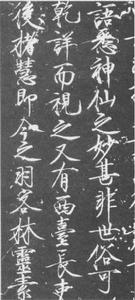 語悉神仙之妙甚非世俗可
乾詳而視之又有西臺長史
後褚慧即今之羽客林靈素